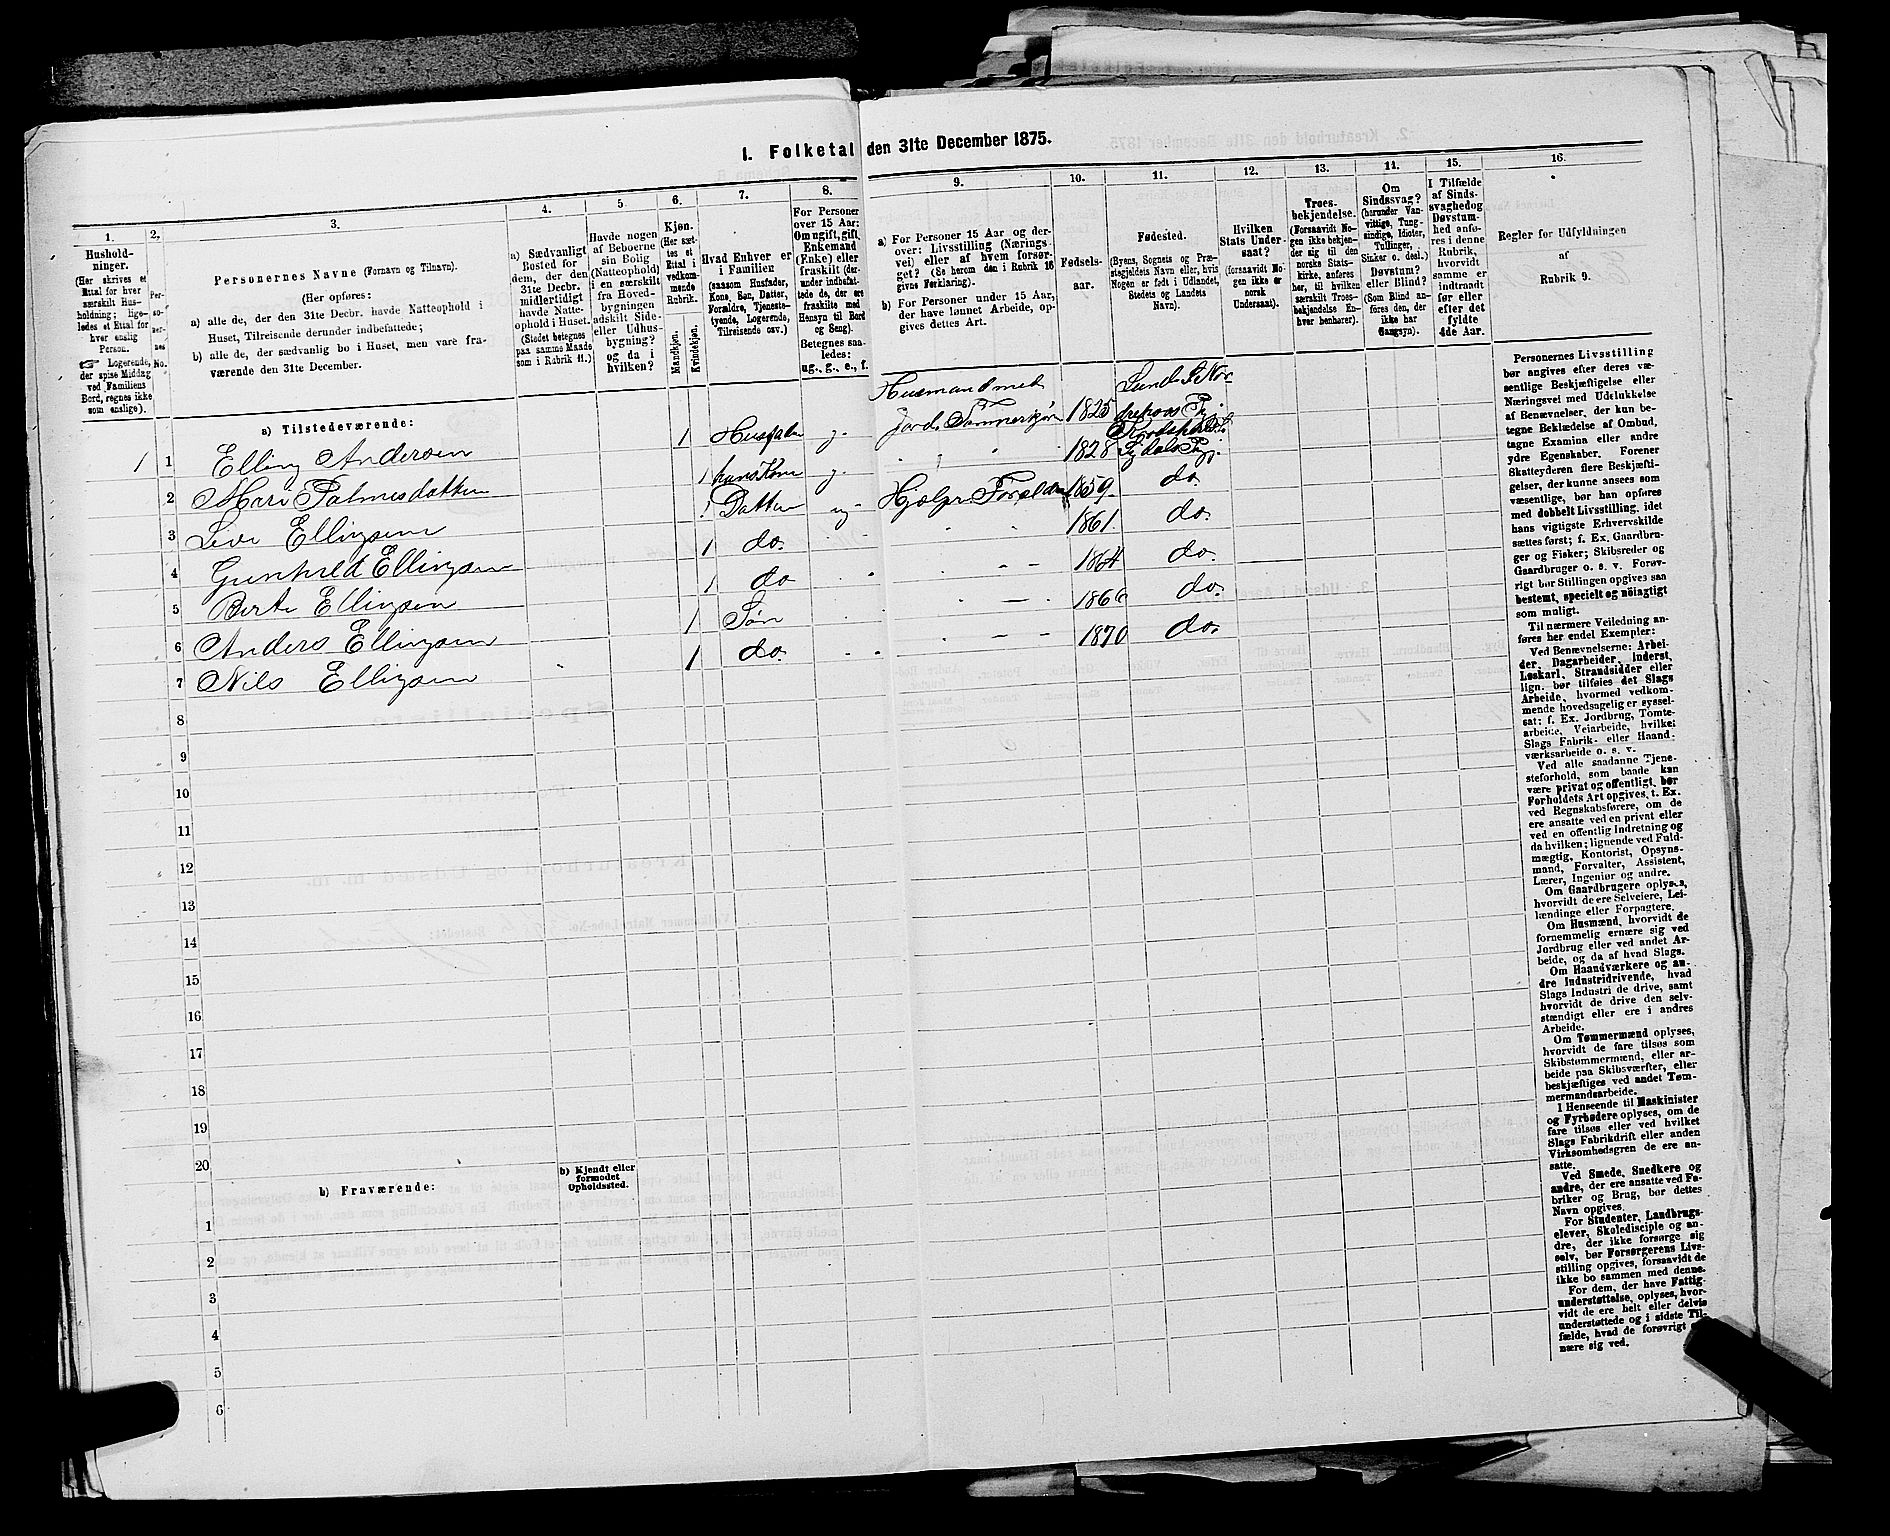 1. Folketal den 31te December 1875.
1. 2. 3. 4. 5. 6. 7. 8. 9. 10. 11. 12. 13. 14. 15. 16.
Hushold-
ninger.
(Her skrives et
Ettal for hver
særskilt Hus-
holdning; lige-
ledes et Ettal for
hver enslig
Person.
Logerende,
der spise Middag
ved Familiens
Bord, regnes ikke
som enslige).
Per-
so-
ner-
nes
No.
Personernes Navne (Fornavn og Tilnavn).
(Her opføres:
a) alle de, der den 31te Decbr. havde Natteophold i
Huset, Tilreisende derunder indbefattede;
b) alle de, der sædvanlig bo i Huset, men vare fra-
værende den 31te December.
a) Sædvanligt
Bosted for
dem, der den
31te Decbr.
midlertidigt
havde Natte-
ophold i Huset.
(Stedet betegnes
paa samme Maade
som i Rubrik 11.)
Havde nogen
af Beboerne
sin Bolig
(Natteophold)
i en særskilt
fra Hoved-
bygningen
adskilt Side-
eller Udhus-
bygning?
og da i
hvilken?
Kjøn.
(Her sæt-
tes et
Ettal i
vedkom-
mende
Rubrik.
Mandkjøn.
Kvindekjøn.
Hvad Enhver er
i Familien
(saasom Husfader,
Kone, Søn, Datter,
Forældre, Tjeneste-
tyende, Logerende,
Tilreisende osv.)
For Personer
over 15 Aar:
Om ugift, gift,
Enkemand
(Enke) eller
fraskilt (der-
under indbefat-
tede de, der ere
fraskilte med
Hensyn til Bord
og Seng).
Betegnes saa-
ledes:
ug., g., e., f.
a) For Personer 15 Aar og der-
over: Livsstilling (Nærings-
vei) eller af hvem forsør-
get? (Se herom den i Rubrik 16
givne Forklaring).
b) For Personer under 15 Aar,
der have lønnet Arbeide, op-
gives dettes Art.
Fødsels-
aar.
Fødested.
(Byens, Sognets og Præ-
stegjeldets Navn eller, hvis
Nogen er født i Udlandet,
Stedets og Landets
Navn).
Hvilken
Stats Under-
saat?
(forsaavidt No-
gen ikke er
norsk
Undersaat).
Troes-
bekjendelse.
(Forsaavidt No-
gen ikke bekjen-
der sig til den
norske Stats-
kirke, anføres
her, til hvilken
særskilt Troes-
bekjendelse En-
hver henhører).
Om
Sindssvag?
(herunder Van-
vittige, Tung-
sindige, Idioter,
Tullinger,
Sinker o. desl.)
Døvstum?
eller Blind?
(Som Blind an-
føres den, der
ikke har
Gangsyn).
I Tilfælde
af Sinds-
svaghed og
Døvstum-
hed anfø-
res i denne
Rubrik,
hvorvidt
samme er
indtraadt
før eller
efter det
fyldte
4de Aar.
Regler for Udfyldningen
af
Rubrik 9.
a) Tilstedeværende:
1 1 Elling Andersen 1 Husfader g. Husmand med Jord. Tømmerkjører 1825
2 Mari Palmesdatter 1 hans Kone g. 1828
3 Live Ellingsen 1 Datter ug. Hjælper Forældrene 1859. do.
4 Gunhild Ellingsen 1 do. 1861. do.
5 Berte Ellingsen 1 do 1864 do.
6 Anders Ellingsen 1 Søn 1866 do.
7 Nils Ellingsen 1 do. 1870 do.
8
9
10
11
12
13
14
15
16
17
18
19
20
b) Fraværende:
b) Kjendt eller
formodet
Opholdssted.
1
2
3
4
5
6
Personernes Livsstilling
bør angives efter deres væ-
sentlige Beskjæftigelse eller
Næringsvei med Udelukkelse
af Benævnelser, der kun be-
tegne Beklædelse af Ombud,
tagne Examina eller andre
ydre Egenskaber. Forener
Skatteyderen flere Beskjæfti-
gelser, der kunne ansees som
væsentlige, bør han opføres
med dobbelt Livsstilling, idet
hans vigtigste Erhvervskilde
sættes først; f. Ex. Gaardbru-
ger og Fisker; Skibsreder og
Gaardbruger o. s. v. Forøv-
rigt bør Stillingen opgives saa
bestemt, specielt og nøiagtigt
som muligt.
Til nærmere Veiledning an-
føres her endel Exempler:
Ved Benævnelserne: Arbei-
der, Dagarbeider, Inderst,
Løskarl, Strandsidder eller
lign. bør tilføies det Slags
Arbeide, hvormed vedkom-
mende hovedsagelig er syssel-
sat; f. Ex. Jordbrug, Tomte-
arbeide, Veiarbeide, hvilket
Slags Fabrik- eller Haand-
værksarbeide o. s. v.
Ved alle saadanne Tjene-
steforhold, som baade kan
være privat og offentligt, bør
Forholdets Art opgives, t. Ex.
ved Regnskabsførere, om de
ere ansatte ved en privat eller
ved en offentlig Indretning og
da hvilken; lignende ved Fuld-
mægtig, Kontorist, Opsyns-
mand, Forvalter, Assistent,
Lærer, Ingeniør og andre.
Om Gaardbrugere oplyses,
hvorvidt de ere Selveiere, Lei-
lændinge eller Forpagtere.
Om Husmænd, hvorvidt de
fornemmelig ernære sig ved
Jordbrug eller ved andet Ar-
beide, og da af hvad Slags.
Om Haandværkere og an-
dre Industridrivende, hvad
Slags Industri de drive, samt
hvorvidt de drive den selv-
stændigt eller ere i andres
Arbeide.
Om Tømmermænd oplyses,
hvorvidt de fare tilsøs som
Skibstømmermænd, eller ar-
beide paa Skibsværfter, eller
beskjæftiges ved andet Tøm-
mermandsarbeide.
I Henseende til Maskinister
og Fyrbødere oplyses, om de
fare tilsøs eller ved hvilket
Slags Fabrikdrift eller anden
Virksomhedsgren de ere an-
satte.
Ved Smede, Snedkere og
andre, der ere ansatte ved Fa-
briker og Brug, bør dettes
Navn opgives.
For Studenter, Landbrugs-
elever, Skoledisciple og an-
dre, der ikke forsørge sig
selv, bør Forsørgerens Livs-
stilling opgives, forsaavidt de
ikke bo sammen med denne.
For dem, der have Fattig-
understøttelse, oplyses, hvor-
vidt de ere helt eller delvis
understøttede og i sidste Til-
fælde, hvad de forøvrigt er-
nære sig ved.